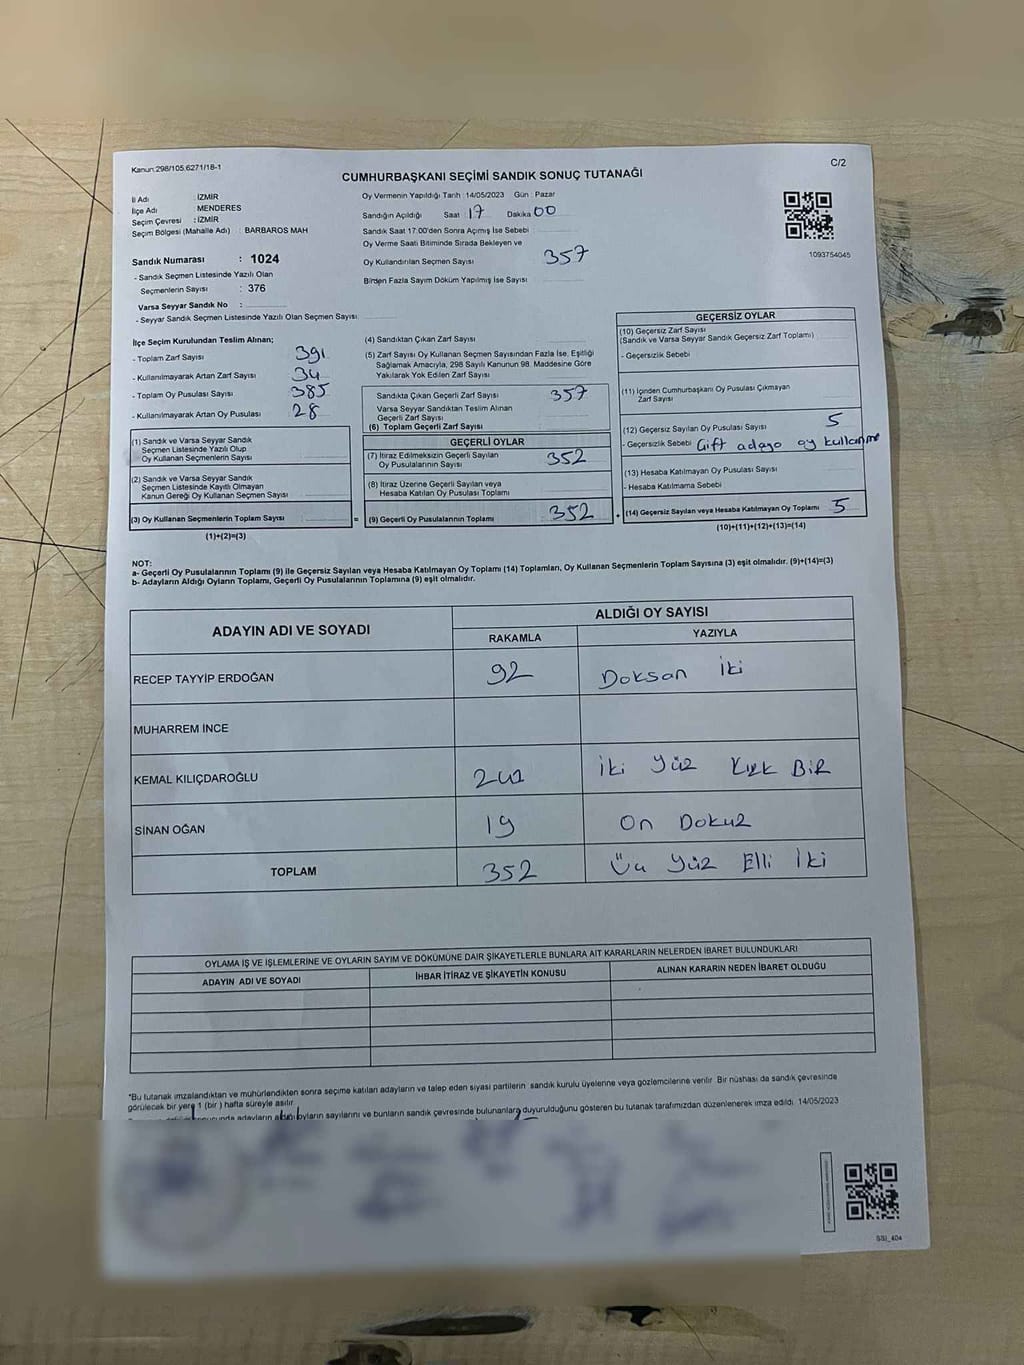 Kanun:298/105,6271/18-1
C/2
CUMHURBAŞKANI SEÇİMİ SANDIK SONUÇ TUTANAĞI
İl Adı : İZMİR
İlçe Adı : MENDERES
Seçim Çevresi : İZMİR
Seçim Bölgesi (Mahalle Adı) : BARBAROS MAH
Sandık Numarası : 1024
- Sandık Seçmen Listesinde Yazılı Olan
Seçmenlerin Sayısı : 376
Varsa Seyyar Sandık No :
- Seyyar Sandık Seçmen Listesinde Yazılı Olan Seçmen Sayısı
Oy Vermenin Yapıldığı Tarih : 14/05/2023 Gün : Pazar
Sandığın Açıldığı Saat 17 Dakika 00
Sandık Saat 17:00'den Sonra Açımış İse Sebebi
Oy Verme Saati Bitiminde Sırada Bekleyen ve
Oy Kullandırılan Seçmen Sayısı 357
Birden Fazla Sayım Döküm Yapılmış İse Sayısı
1093754045
İlçe Seçim Kurulundan Teslim Alınan;
- Toplam Zarf Sayısı 391
- Kullanılmayarak Artan Zarf Sayısı 34
- Toplam Oy Pusulası Sayısı 385
- Kullanılmayarak Artan Oy Pusulası 28
(1) Sandık ve Varsa Seyyar Sandık
Seçmen Listesinde Yazılı Olup
Oy Kullanan Seçmenlerin Sayısı
(2) Sandık ve Varsa Seyyar Sandık
Seçmen Listesinde Kayıtlı Olmayan
Kanun Gereği Oy Kullanan Seçmen Sayısı
(3) Oy Kullanan Seçmenlerin Toplam Sayısı
(1)+(2)=(3)
(4) Sandıktan Çıkan Zarf Sayısı
(5) Zarf Sayısı Oy Kullanan Seçmen Sayısından Fazla İse, Eşitliği
Sağlamak Amacıyla, 298 Sayılı Kanunun 98. Maddesine Göre
Yakılarak Yok Edilen Zarf Sayısı
Sandıkta Çıkan Geçerli Zarf Sayısı 357
Varsa Seyyar Sandıktan Teslim Alınan
Geçerli Zarf Sayısı
(6) Toplam Geçerli Zarf Sayısı
GEÇERLİ OYLAR
(7) İtiraz Edilmeksizin Geçerli Sayılan
Oy Pusulalarının Sayısı 352
(8) İtiraz Üzerine Geçerli Sayılan veya
Hesaba Katılan Oy Pusulası Toplamı
= (9) Geçerli Oy Pusulalarının Toplamı 352
GEÇERSİZ OYLAR
(10) Geçersiz Zarf Sayısı
(Sandık ve Varsa Seyyar Sandık Geçersiz Zarf Toplamı)
- Geçersizlik Sebebi
(11) İçinden Cumhurbaşkanı Oy Pusulası Çıkmayan
Zarf Sayısı
(12) Geçersiz Sayılan Oy Pusulası Sayısı 5
- Geçersizlik Sebebi Çift adaya oy kullanma
(13) Hesaba Katılmayan Oy Pusulası Sayısı
- Hesaba Katılmama Sebebi
+ (14) Geçersiz Sayılan veya Hesaba Katılmayan Oy Toplamı 5
(10)+(11)+(12)+(13)=(14)
NOT:
a- Geçerli Oy Pusulalarının Toplamı (9) ile Geçersiz Sayılan veya Hesaba Katılmayan Oy Toplamı (14) Toplamları, Oy Kullanan Seçmenlerin Toplam Sayısına (3) eşit olmalıdır. (9)+(14)=(3)
b- Adayların Aldığı Oyların Toplamı, Geçerli Oy Pusulalarının Toplamına (9) eşit olmalıdır.
ADAYIN ADI VE SOYADI
ALDIĞI OY SAYISI
RAKAMLA YAZIYLA
RECEP TAYYİP ERDOĞAN 92 Doksan İki
MUHARREM İNCE
KEMAL KILIÇDAROĞLU 241 İki Yüz Kırk BİR
SİNAN OĞAN 19 On Dokuz
TOPLAM 352 Üç Yüz Elli İki
OYLAMA İŞ VE İŞLEMLERİNE VE OYLARIN SAYIM VE DÖKÜMÜNE DAİR ŞİKAYETLERLE BUNLARA AİT KARARLARIN NELERDEN İBARET BULUNDUKLARI
ADAYIN ADI VE SOYADI İHBAR İTİRAZ VE ŞİKAYETİN KONUSU ALINAN KARARIN NEDEN İBARET OLDUĞU
*Bu tutanak imzalandıktan ve mühürlendikten sonra seçime katılan adayların ve talep eden siyasi partilerin sandık kurulu üyelerine veya gözlemcilerine verilir. Bir nüshası da sandık çevresinde
görülecek bir yere 1 (bir) hafta süreyle asılır.
adayların aldığı oyların sayılarını ve bunların sandık çevresinde bulunanlara duyurulduğunu gösteren bu tutanak tarafımızdan düzenlenerek imza edildi. 14/05/2023
SSI_404